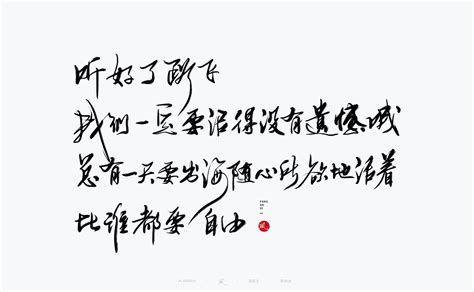 听好了路飞
我们一定要活得没有遗憾哦
总有一天要出海随心所欲地活着
比谁都要自由